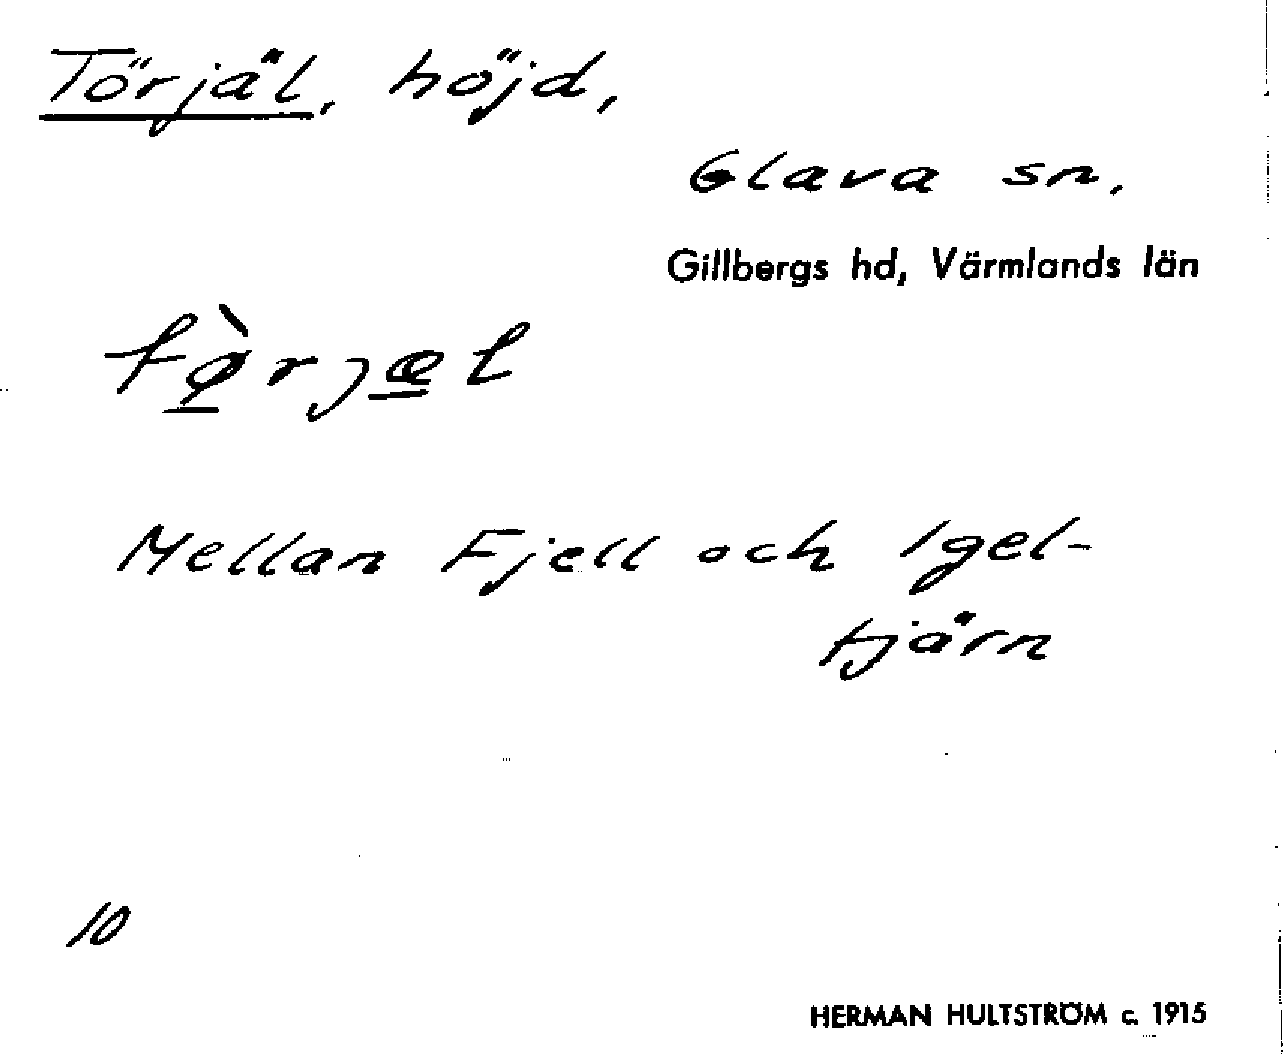 Törjäl, höjd,
Glava sn.
Gillbergs hd, Värmlands län
tø̀rjæl
Mellan Fjell och Igel-
tjärn
10
HERMAN HULTSTRÖM c. 1915